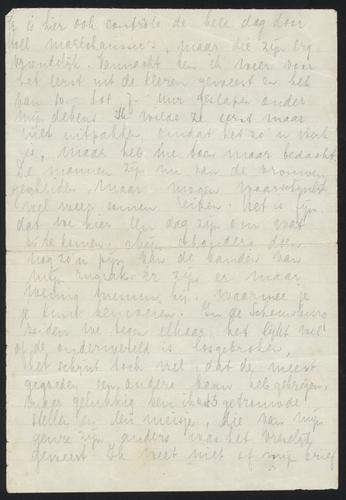 Er is hier ook controle de hele dag door
wel marechaussee's, maar die zijn erg
vriendelijk. Vannacht ben ik weer voor
het eerst uit de kleren geweest en heb
van 10 - tot 7 - uur geslapen onder
mijn dekens. Ik wilde ze eerst maar
niet uitpakken, omdat het zo'n werk
is, maar heb me toen maar bedacht
De mannen zijn nu van de vrouwen
gescheiden, maar mogen waarschijnlijk
wel weer samen reizen. Het is fijn
dat we hier een dag zijn om wat
bij te komen. Mijn schouders doen
nog zo'n pijn van de banden van
mijn rugzak. Er zijn er maar
weinig mensen bij, waarmee je
je kunt bemoeien. In de Schouwburg
zeiden we tegen elkaar, het lijkt wel
of de onderwereld is losgebroken,
het schijnt toch wel, dat de meest
gegoeden een andere baan heb gekregen.
gelukkig ben ik met 3 getrouwde
stellen en een meisje, die van mijn
genre zijn, anders was het vreselijk
geweest. Ik weet niet of mijn brief